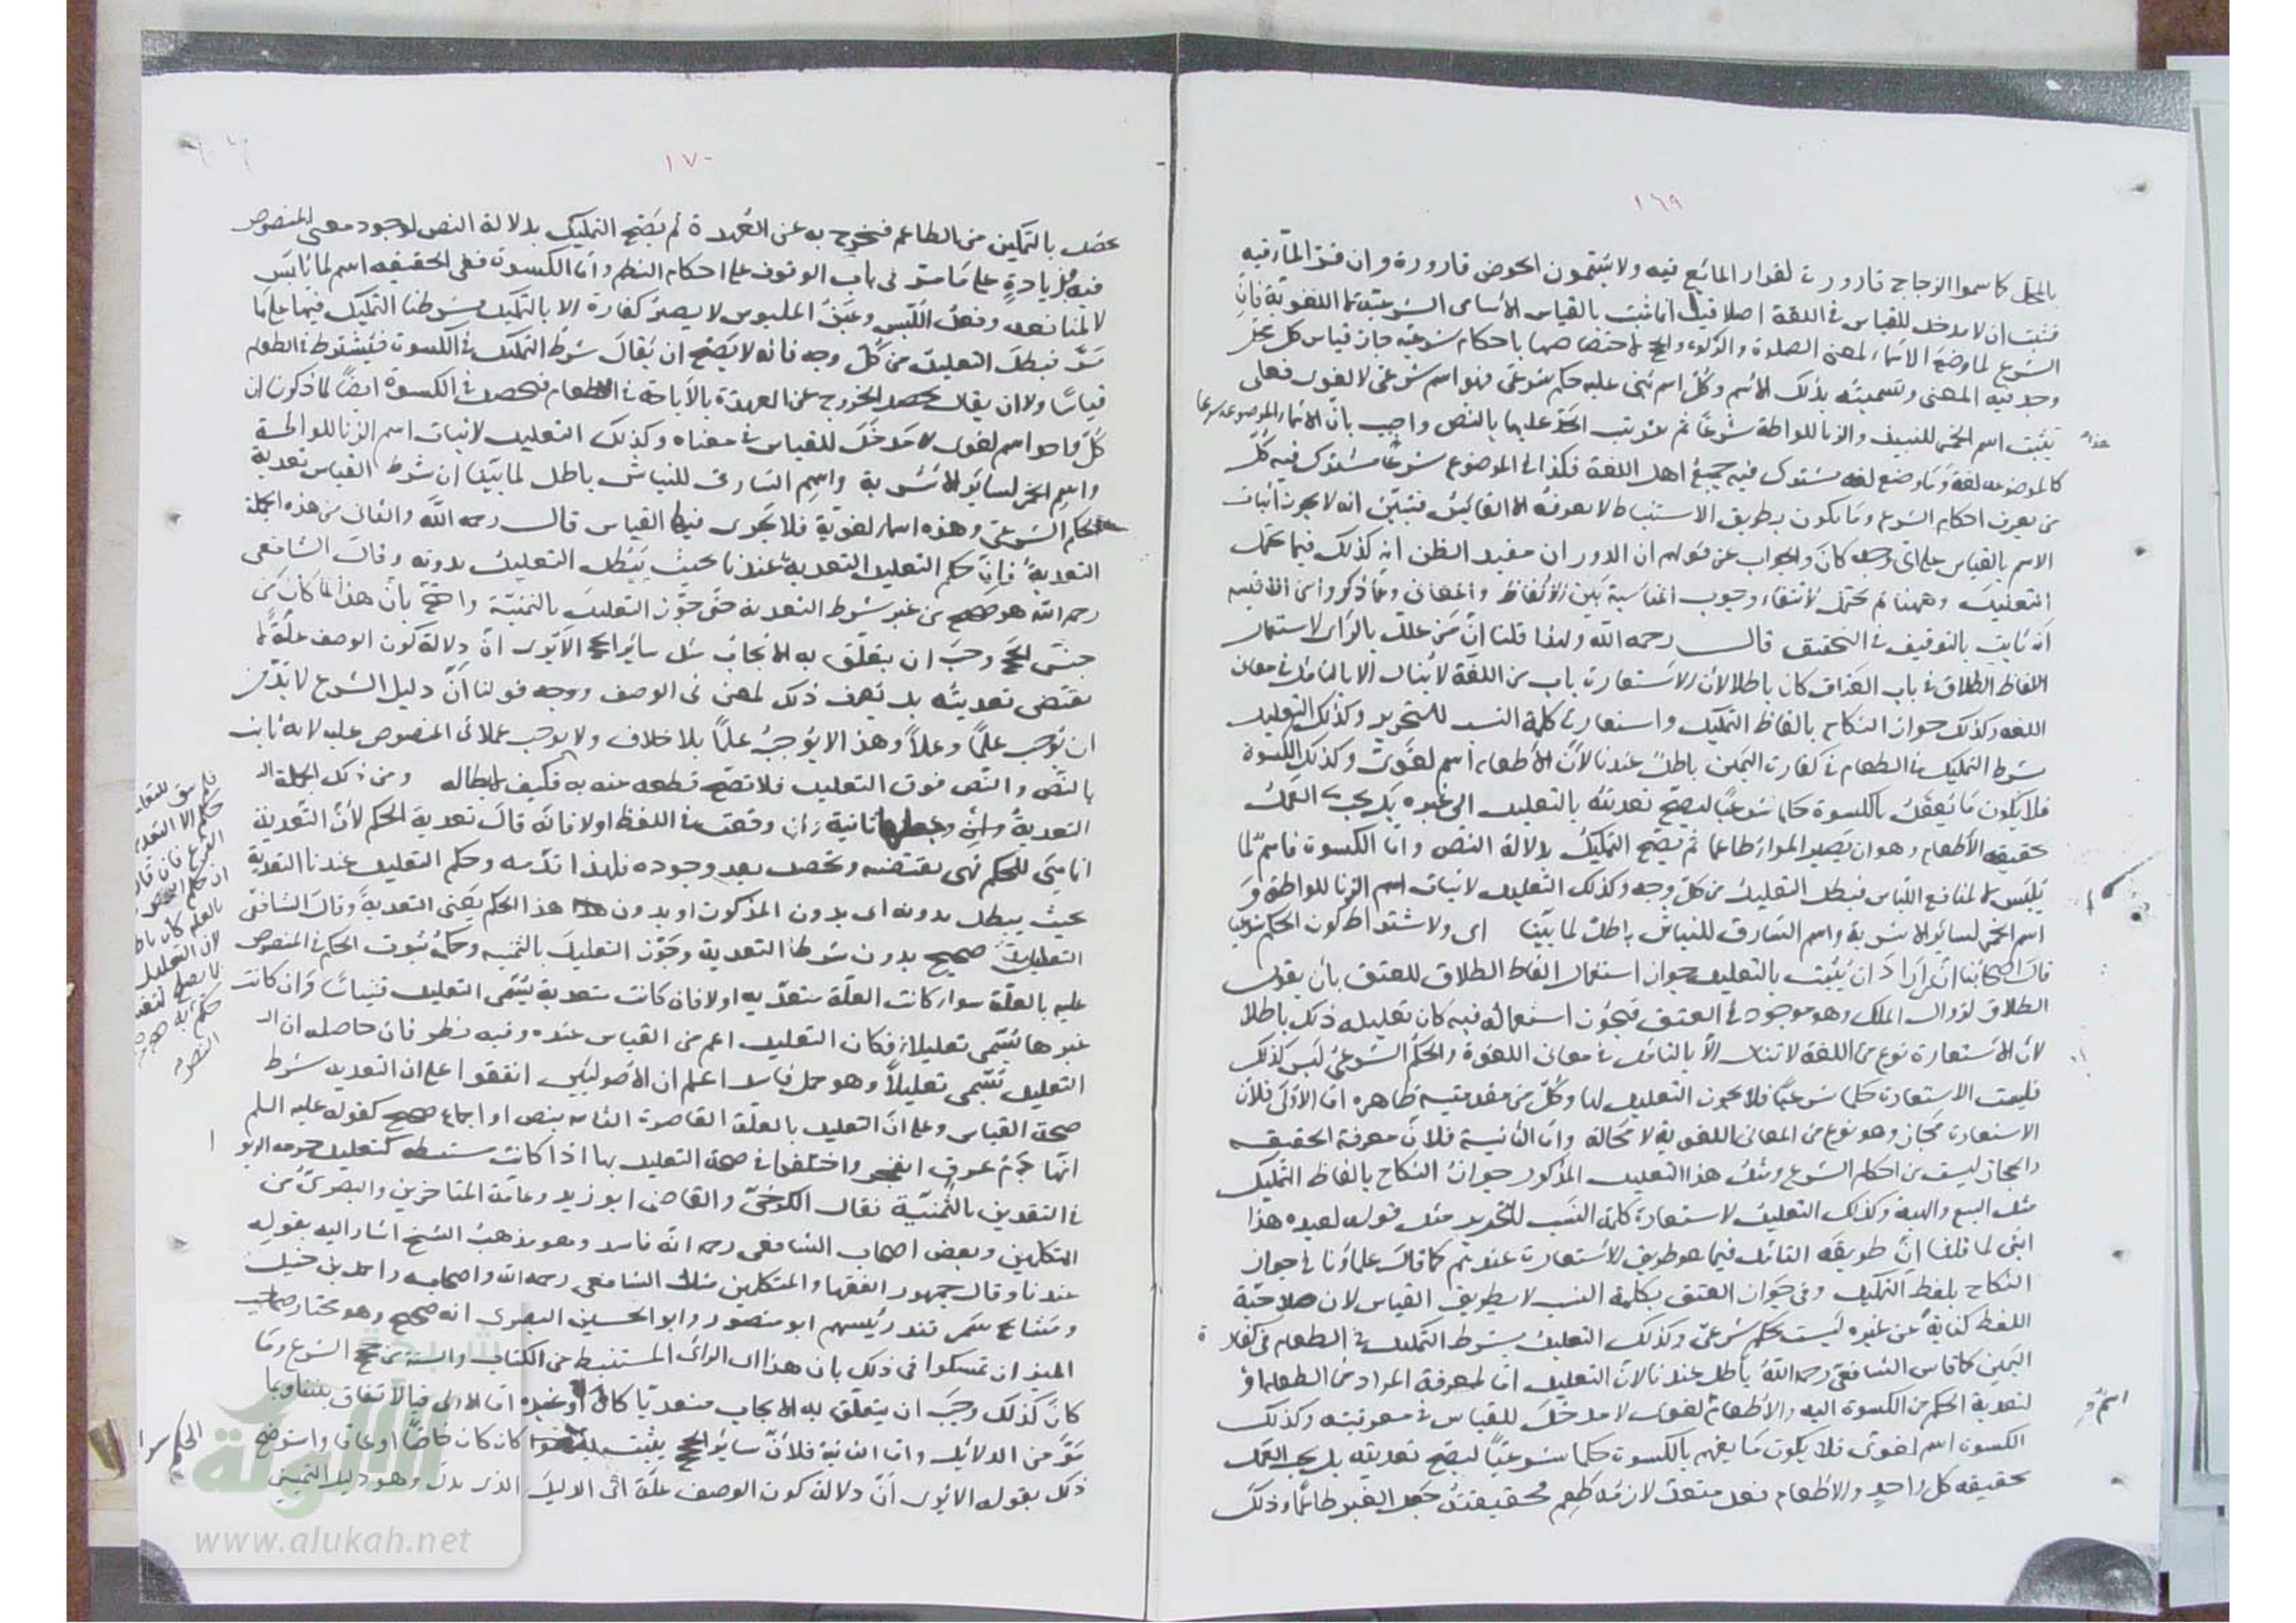 ١٦٩
بالمحل كما سموا الزجاج قارورة لقرار المائع فيه ولا يسمون الحوض قارورة وان قر الماء فيه
فثبت ان لا مدخل للقياس في اللغة اصلا قيل انما يثبت بالقياس الأسامي الشرعية لا اللغوية فان
الشرع لما وضع الاسماء لمعنى الصلوة والزكوة والحج لاختصاصها باحكام شرعية جاز قياس كل محل
وجد فيه المعنى وتسميته بذلك الاسم وكل اسم بني عليه حكم شرعي فهو اسم شرعي لا لغوي فعلى
هذا يثبت اسم الخمر للنبيذ والزنا للواطة شرعاً ثم يترتب الحد عليها بالنص واجيب بان الاسماء الموضوعة شرعا
كالموضوعة لغة وما وضع لغة يشترك فيه جميع اهل اللغة فكذا في الموضوع شرعاً يشترك فيه كل
من يعرف احكام الشرع وما يكون بطريق الاستنباط لا يعرفه الا القائس فتبين انه لا يجوز اثبات
الاسم بالقياس على اي وجه كان والجواب عن قولهم ان الدوران مفيد الظن انه كذلك فيما يحتمل
التعليل وههنا لم يحتمل لانتفاء وجوب المناسبة بين الالفاظ والمعاني وما ذكروا من الاقيسة
انه ثابت بالتوقيف في التحقيق قال رحمه الله ولهذا قلنا ان من علل بالرأي لاستعمال
الفاظ الطلاق في باب العتاق كان باطلا لان الاستعارة باب من اللغة لا ينال الا بالتأمل في معاني
اللغة وكذلك جواز النكاح بالفاظ التمليك واستعارة كلمة النسب للتحرير وكذلك التعليل
بشرط التمليك في الطعام في كفارة اليمين باطل عندنا لان الاطعام اسم لغوي وكذلك الكسوة
فلا يكون ما يعقل بالكسوة حكما شرعيا ليصح تعديته بالتعليل الى غيره بل يجب العمل
بحقيقة الاطعام وهو ان يصير المرء طاعما ثم يصح التمليك بدلالة النص واما الكسوة فاسم لما
يلبس لا لمنافع اللباس فبطل التعليل من كل وجه وكذلك التعليل لاثبات اسم الزنا للواطة و
اسم الخمر لسائر الاشربة واسم السارق للنباش باطل لما بينا اي ولاشتراط كون الحكم شرعيا
قال اصحابنا ان من اراد ان يثبت بالتعليل جواز استعمال الفاظ الطلاق للعتق بان يقول
الطلاق لزوال الملك وهو موجود في العتق فيجوز استعماله فيه كان تعليله ذلك باطلا
لان الاستعارة نوع من اللغة لا تنال الا بالتأمل في معاني اللغوة والحكم الشرعي ليس كذلك
فليست الاستعارة حكما شرعيا فلا يجوز التعليل لها وكل من مقدمتيه ظاهره اما الاولى فلان
الاستعارة مجاز وهو نوع من المعاني اللغوية لا محالة واما الثانية فلان معرفة الحقيقة
والمجاز ليست من احكام الشرع ومثل هذا التعليل المذكور جواز النكاح بالفاظ التمليك
مثل البيع والهبة وكذلك التعليل لاستعارة كلمة النسب للتحرير مثل قوله لعبده هذا
ابني لما قلنا ان طريقه التأمل فيما هو طريق الاستعارة عندهم كما قال علماؤنا في جواز
النكاح بلفظ التمليك وفي جواز العتق بكلمة النسب لا بطريق القياس لان صلاحية
اللفظ كناية عن غيره ليست بحكم شرعي وكذلك التعليل بشرط التمليك في الطعام في كفارة
اليمين كما قاس الشافعي رحمه الله باطل عندنا لان التعليل اما لمعرفة المراد من الطعام او
لتعدية الحكم من الكسوة اليه والاطعام اسم لغوي لا مدخل للقياس في معرفته وكذلك
الكسوة اسم لغوي فلا يكون ما يفهم بالكسوة حكما شرعيا ليصح تعديته بل يجب العمل
بحقيقة كل واحد والاطعام فعل متعد لازمه طعم فحقيقته جعل الغير طاعما وذلك
١٧٠
يحصل بالتمكين من الطاعم فيخرج به عن العهدة ثم يصح التمليك بدلالة النص لوجود معنى المنصوص
فيه وزيادة على ما مر في باب الوقوف على احكام النظم واما الكسوة ففي الحقيقة اسم لما يلبس
لا لمنافعه وفعل اللبس وعين الملبوس لا يصير كفارة الا بالتمليك فشرطنا التمليك فيها على ما
مر فبطل التعليل من كل وجه فانه لا يصح ان يقال شرط التمليك في الكسوة فيشترط في الطعام
قياسا ولا ان يقال يحصل الخروج عن العهدة بالاباحة في الاطعام فيحصل في الكسوة ايضا لما ذكرنا ان
كل واحد اسم لغوي لا مدخل للقياس في معناه وكذلك التعليل لاثبات اسم الزنا للواطة
واسم الخمر لسائر الاشربة واسم السارق للنباش باطل لما بينا ان شرط القياس تعدية
الحكم الشرعي وهذه اسماء لغوية فلا يجري فيها القياس قال رحمه الله والثاني من هذه الجملة
التعدية فان حكم التعليل التعدية عندنا بحيث يبطل التعليل بدونه وقال الشافعي
رحمه الله هو صحيح من غير شرط التعدية حتى جوز التعليل بالثمنية واحتج بان هذا لما كان من
جنس الحجج وجب ان يتعلق به الايجاب مثل سائر الحجج الا يرى ان دلالة كون الوصف علة لا
تقتضي تعديته بل يعرف ذلك لمعنى في الوصف ووجه قولنا ان دليل الشرع لا بد من
ان يوجب علما وعملا وهذا لا يوجب علما بلا خلاف ولا يوجب عملا في المنصوص عليه لانه ثابت
بالنص والنص فوق التعليل فلا يصح قطعه عنه به فكيف بابطاله ومن تلك الجملة
التعدية
انما هي للحكم فهي تقتضيه وتحصل بعد وجوده فلهذا قدمه وحكم التعليل عندنا التعدية
بحيث يبطل بدونه اي بدون المذكور او بدون هذا الحكم يعني التعدية وقال الشافعي
التعليل صحيح بدون شرط التعدية وجوز التعليل بالثمنية وحكمه ثبوت الحكم في المنصوص
عليه بالعلة سواء كانت العلة متعدية او لا فان كانت متعدية يسمى التعليل قياسا وان كانت
غيرها يسمى تعليلا فكان التعليل اعم من القياس عنده وفيه نظر فان حاصله ان
التعليل يسمى تعليلا وهو حمل فاسد اعلم ان الاصوليين اتفقوا على ان التعدية شرط
صحة القياس وعلى ان التعليل بالعلة القاصرة الثابتة بنص او اجماع صحيح كقوله عليه السلم
انها دم عرق انفجر واختلفوا في صحة التعليل بها اذا كانت مستنبطة كتعليل حرمة الربو
في النقدين بالثمنية فقال الكرخي والقاضي ابو زيد وعامة المتاخرين والبصري من
المتكلمين وبعض اصحاب الشافعي رحمه انه فاسد وهو مذهب الشيخ اشار اليه بقوله
عندنا وقال جمهور الفقها والمتكلمين مثل الشافعي رحمه الله واصحابه واحمد بن حنبل
ومشايخ سمرقند رئيسهم ابو منصور وابو الحسين البصري انه صحيح وهو مختار صاحب
الميزان تمسكوا في ذلك بان هذا اي الرأي المستنبط من الكتاب والسنة من حجج الشرع وما
كان كذلك وجب ان يتعلق به الايجاب متعديا كان او غيره اما الاولى فبالاتفاق بيننا وبما
مر من الدلائل واما الثانية فلان سائر الحجج يثبت كان خاصا او عاما واستوضح
ذلك بقوله الا يرى ان دلالة كون الوصف علة اي الدليل الذي يدل وهو دليل التمييز
شبكة
الألوكة
www.alukah.net